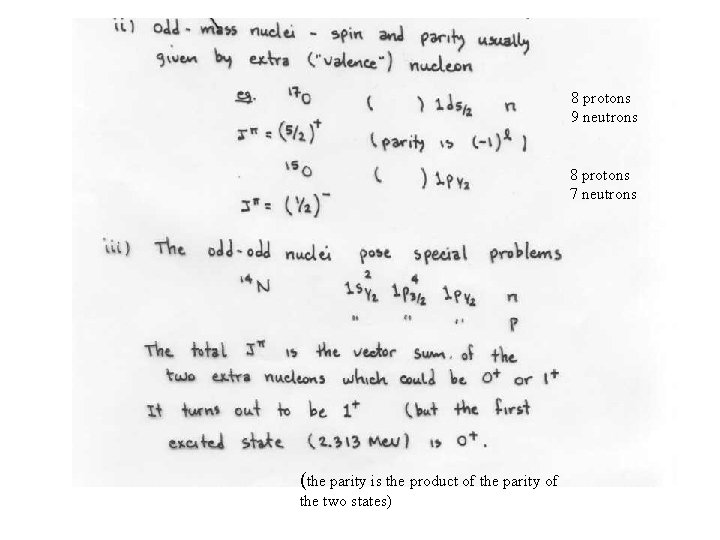 ii) odd-mass nuclei - spin and parity usually
given by extra ("valence") nucleon
eg. ¹⁷O ( ) 1d₅/₂ n
8 protons
9 neutrons
Jπ = (5/2)⁺ (parity is (-1)ˡ )
¹⁵O ( ) 1p₁/₂
8 protons
7 neutrons
Jπ = (1/2)⁻
iii) The odd-odd nuclei pose special problems
¹⁴N 1s₁/₂² 1p₃/₂⁴ 1p₁/₂ n
" " " p
The total Jπ is the vector sum of the
two extra nucleons which could be 0⁺ or 1⁺
It turns out to be 1⁺ (but the first
excited state (2.313 MeV) is 0⁺.
(the parity is the product of the parity of
the two states)